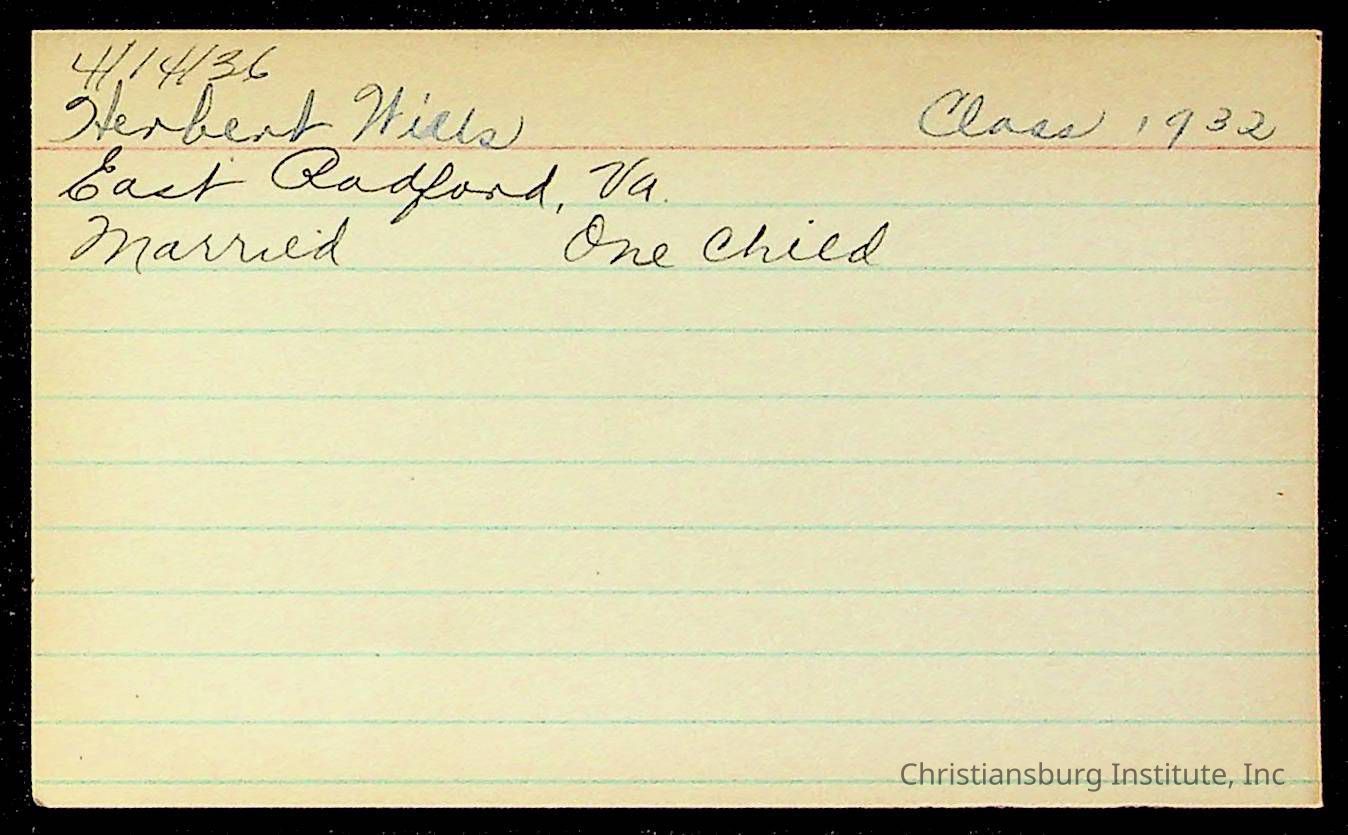 4/14/36
Herbert Wills Class 1932
East Radford, Va.
Married One Child
Christiansburg Institute, Inc